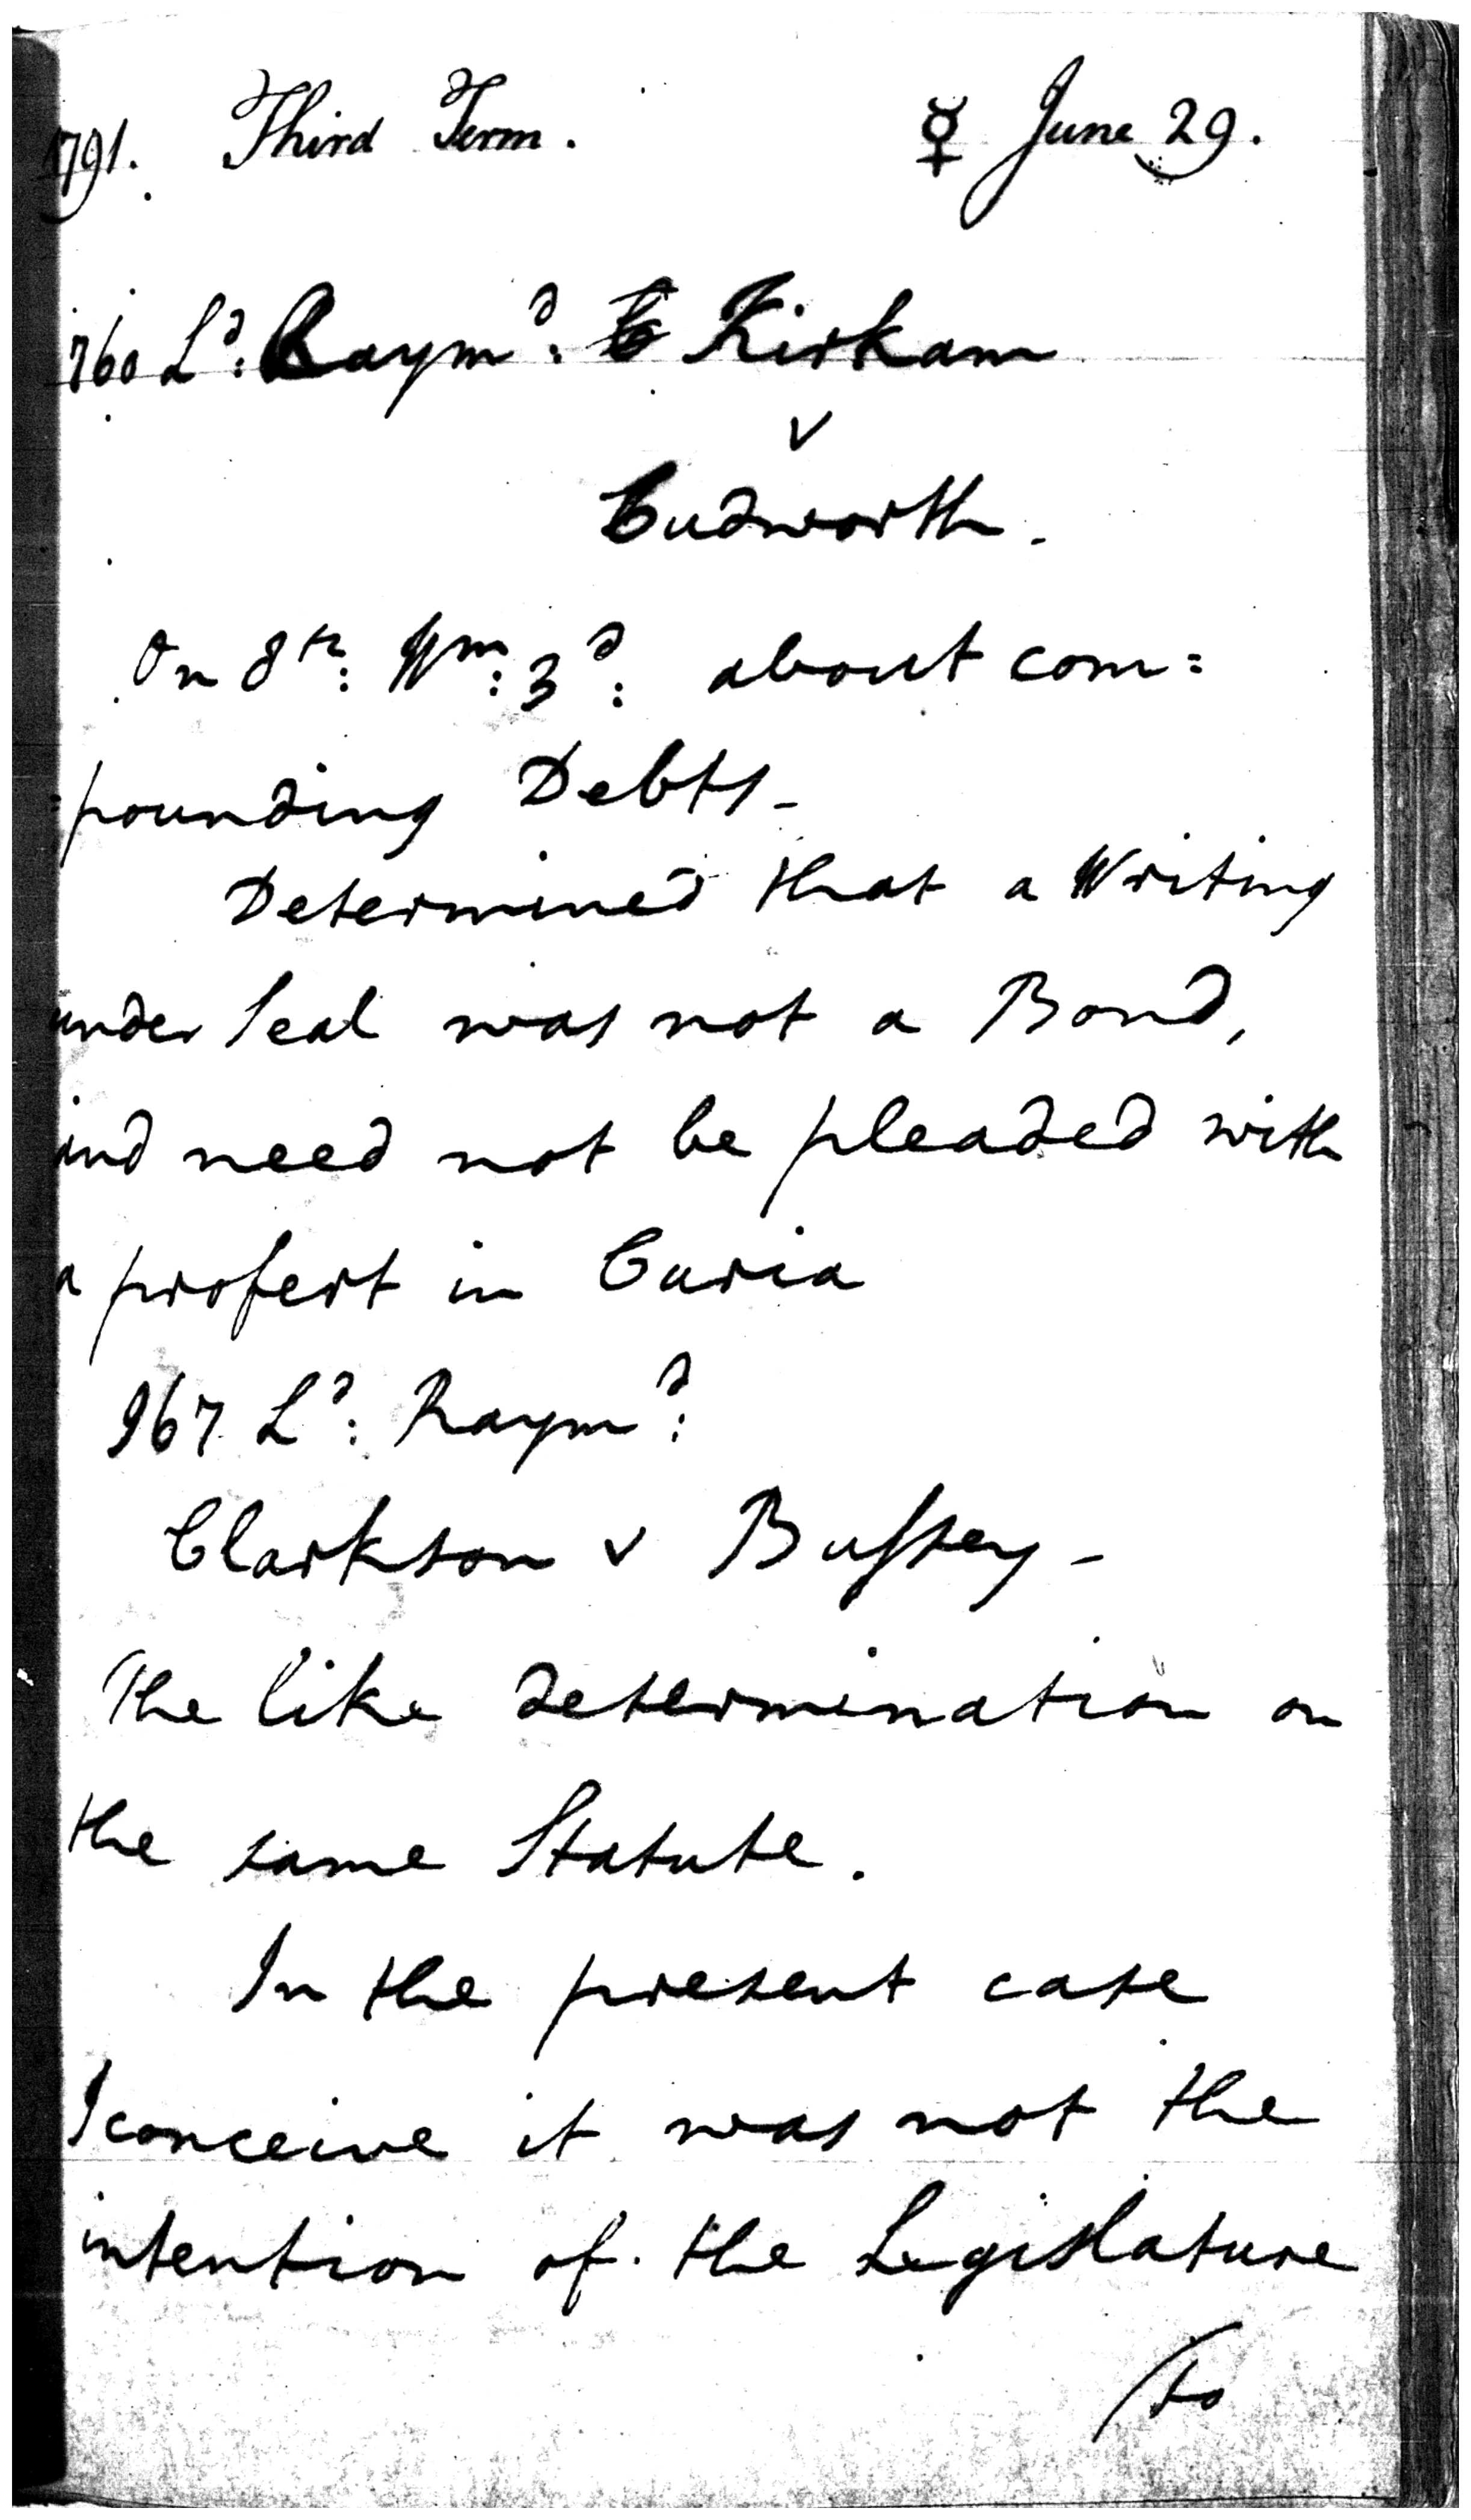 1791. Third Term. ☿ June 29.
760 Ld: Raymd: Kirkam
v
Cudworth.
On 8th: Wm: 3d: about com=
=pounding Debts-
Determined that a Writing
under Seal was not a Bond,
and need not be pleaded with
a profert in Curia
967 Ld: Raymd:
Clarkson v Bussey-
The like determination on
the same Statute.
In the present case
I conceive it was not the
intention of the Legislature
/to